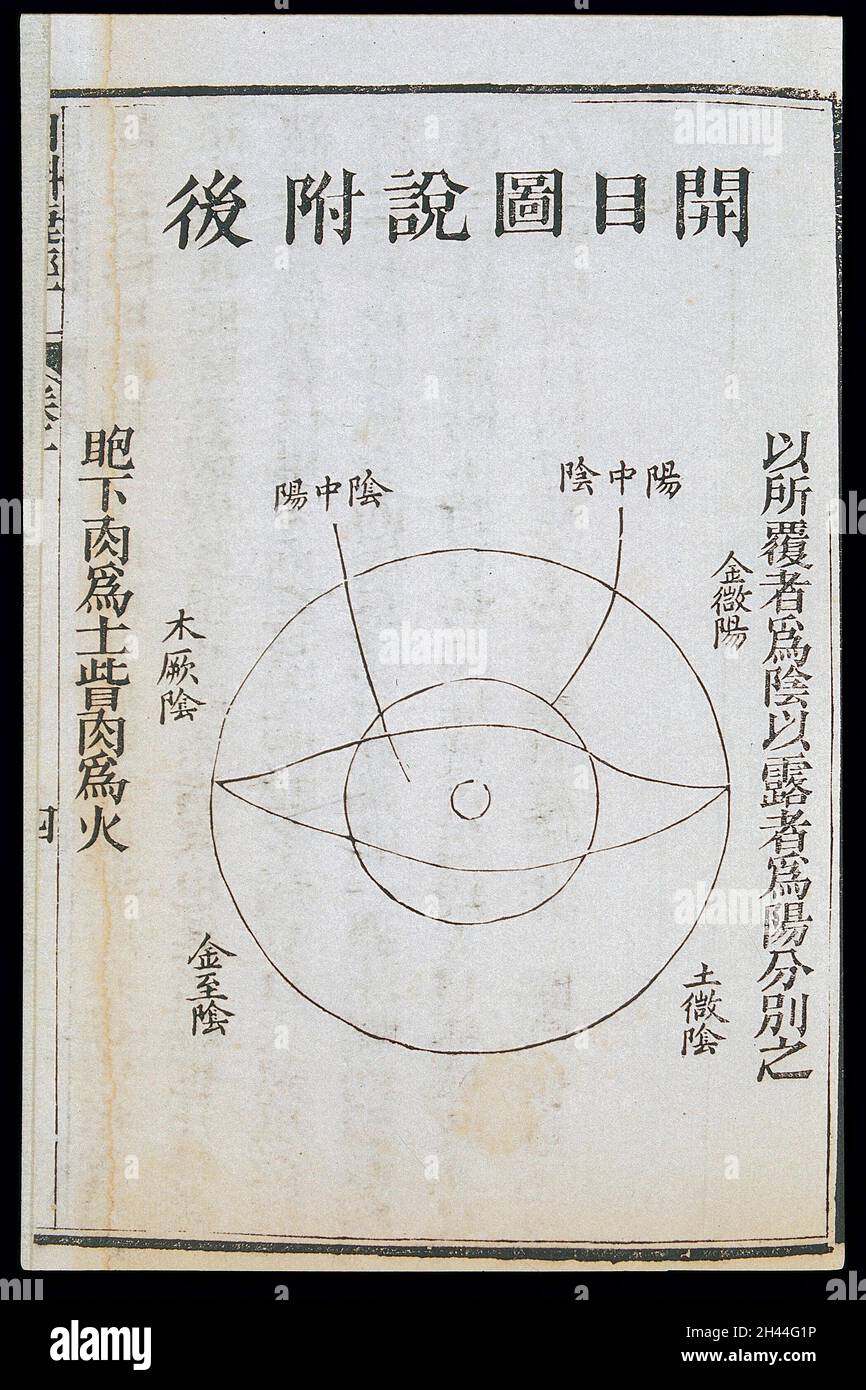 開目圖說附後
以所覆者爲陰以露者爲陽分別之
陽中陰
陰中陽
金微陽
木厥陰
土微陰
金至陰
胞下肉爲土眥肉爲火
四
alamy
Image ID: 2H44G1P
www.alamy.com